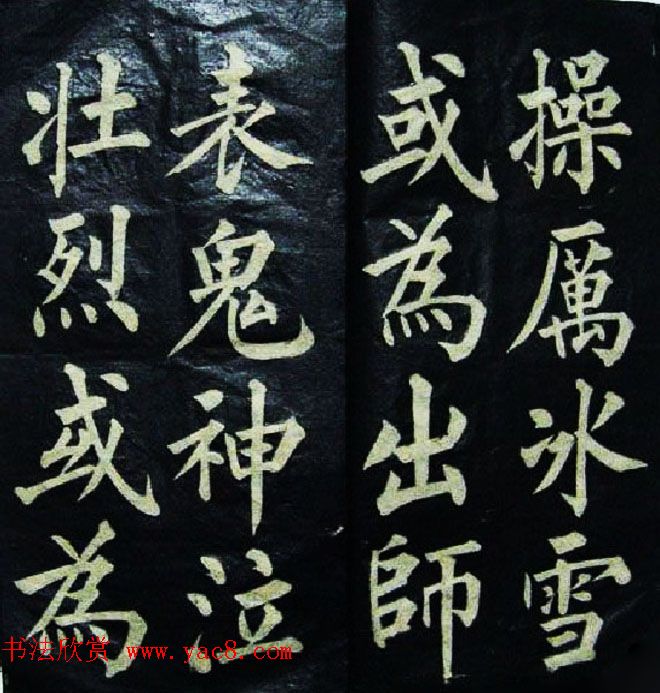 操厲冰雪
或為出師
表鬼神泣
壯烈或為
书法欣赏 www.yac8.com